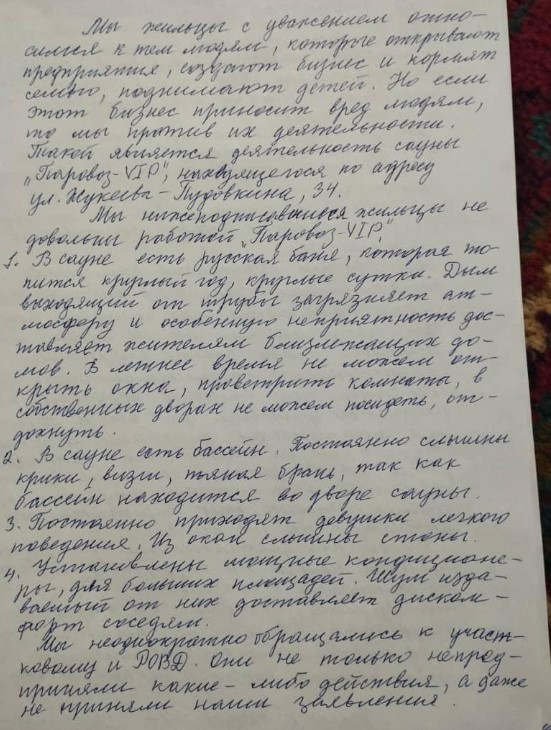 Мы жильцы с уважением отно-
симся к тем людям, которые открывают
предприятия, создают бизнес и кормят
семью, поднимают детей. Но если
этот бизнес приносит вред людям,
то мы против их деятельности.
Такой является деятельность сауны
„Паровоз-VIP", находящегося по адресу
ул. Жукеева-Пудовкина, 34.
Мы нижеподписавшиеся жильцы не
довольны работой „Паровоз-VIP"
1. В сауне есть русская баня, которая то-
пится круглый год, круглые сутки. Дым
выходящий от трубы загрязняет ат-
мосферу и особенную неприятность дос-
тавляет жителям близлежащих до-
мов. В летнее время не можем от-
крыть окна, проветрить комнаты, в
собственных дворах не можем посидеть, от-
дохнуть.
2. В сауне есть бассейн. Постоянно слышны
крики, визги, пьяная брань, так как
бассейн находится во дворе сауны.
3. Постоянно приходят девушки легкого
поведения. Из окон слышны стоны.
4. Установлены мощные кондиционе-
ры, для больших площадей. Шум изда-
ваемый от них доставляет диском-
форт соседям.
Мы неоднократно обращались к участ-
ковому и РОВД. Они не только непред-
приняли какие-либо действия, а даже
не приняли наши заявления.